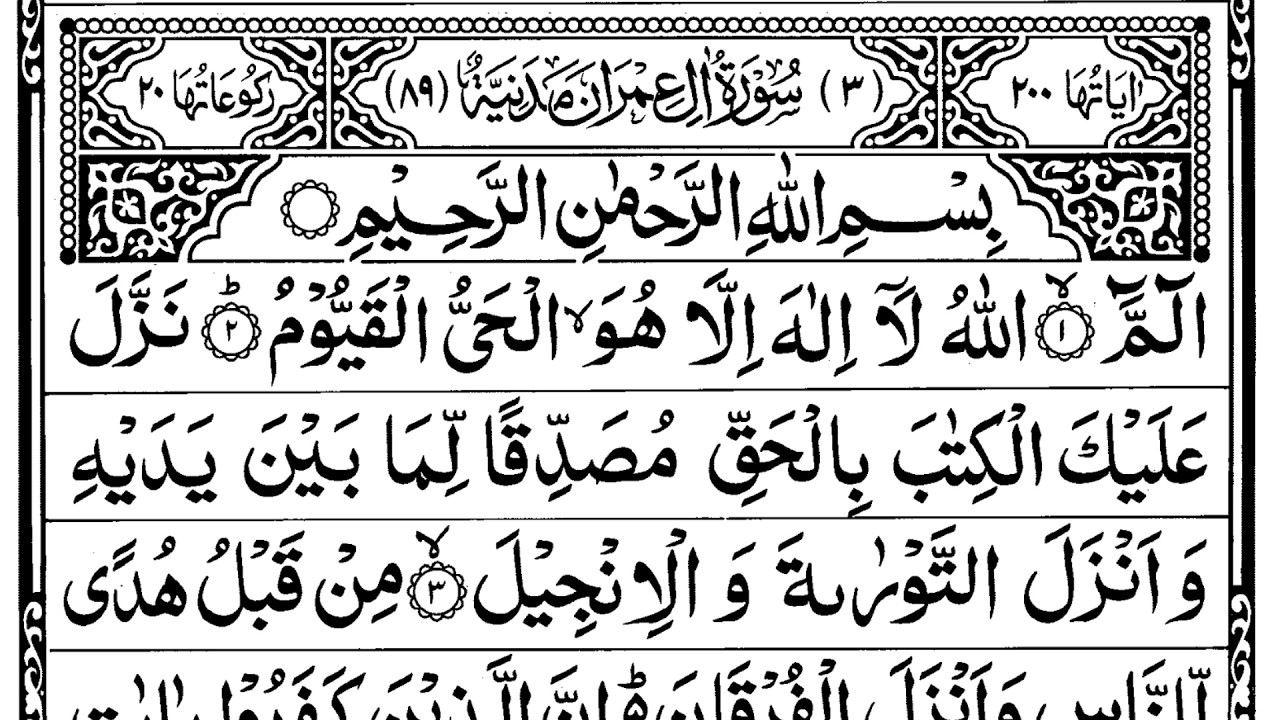 اٰيَاتُهَا ٢٠٠ (٣) سُوْرَةُ اٰلِ عِمْرَانَ مَدَنِيَّةٌ (٨٩) رُكُوْعَاتُهَا ٢٠
بِسْمِ اللّٰهِ الرَّحْمٰنِ الرَّحِيْمِ
الٓمَّٓ ۙ﴿١﴾ اللّٰهُ لَاۤ اِلٰهَ اِلَّا هُوَ ۙ الْحَيُّ الْقَيُّوْمُ ؕ﴿٢﴾ نَزَّلَ
عَلَيْكَ الْكِتٰبَ بِالْحَقِّ مُصَدِّقًا لِّمَا بَيْنَ يَدَيْهِ
وَ اَنْزَلَ التَّوْرٰىةَ وَ الْاِنْجِيْلَ ۙ﴿٣﴾ مِنْ قَبْلُ هُدًى
لِّلنَّاسِ وَ اَنْزَلَ الْفُرْقَانَ ؕ اِنَّ الَّذِيْنَ كَفَرُوْا بِاٰيٰتِ